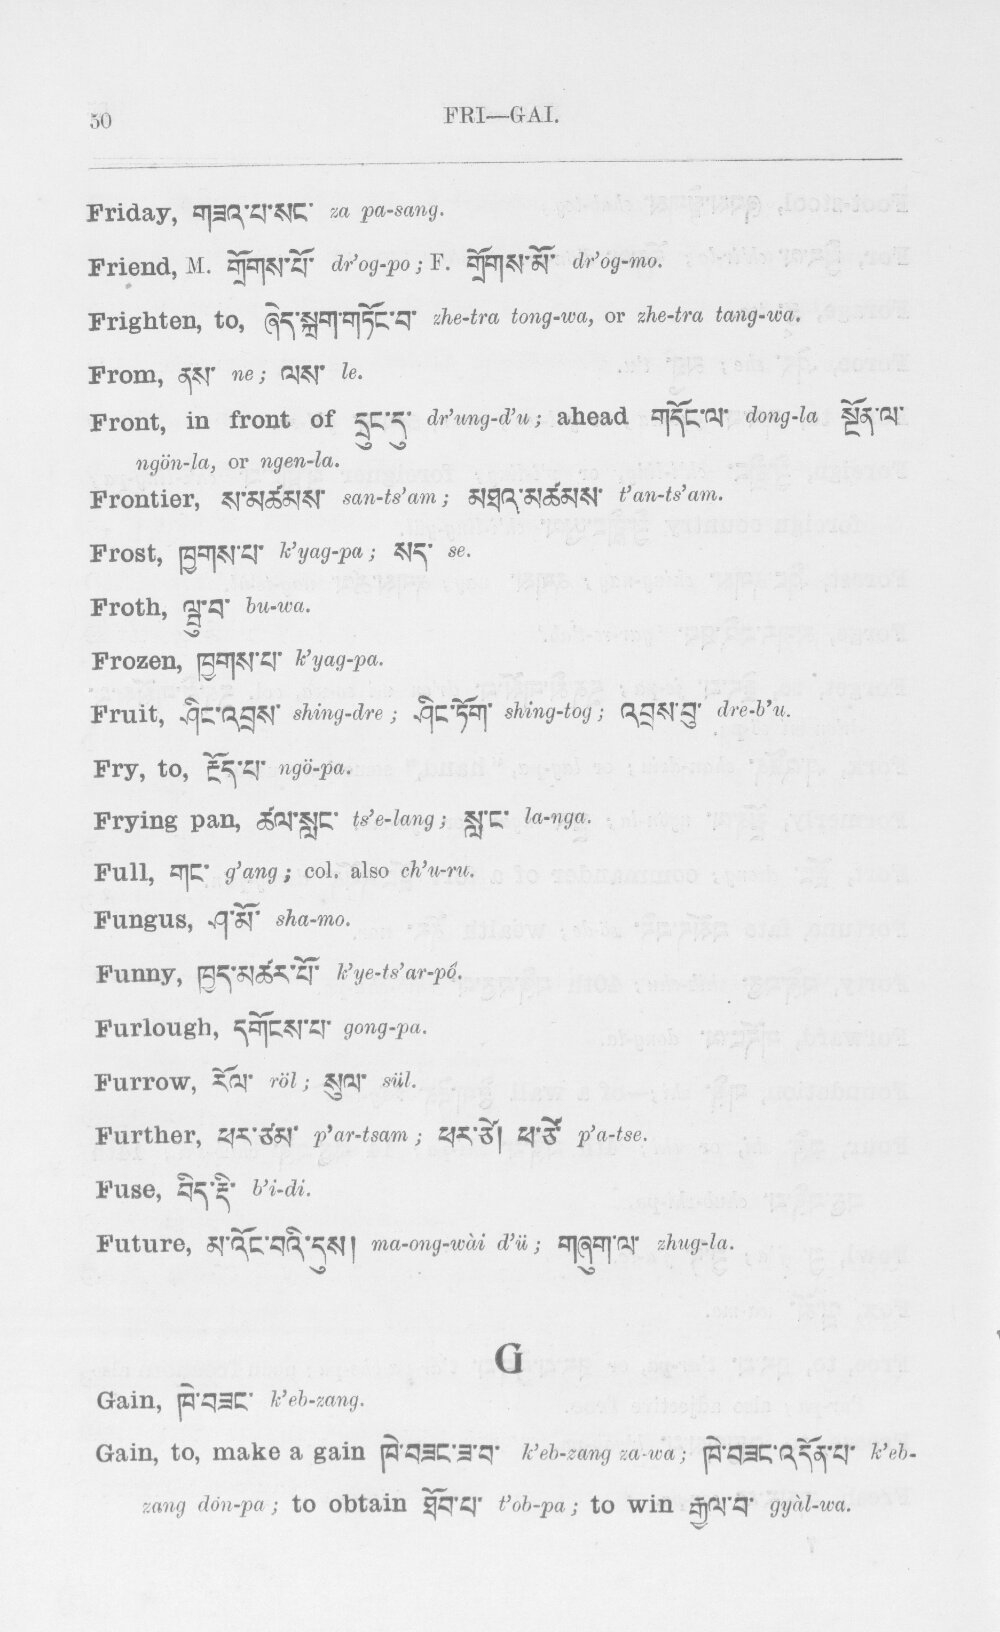 50
FRI—GAI.
Friday, གཟའ་པ་སང་ za pa-sang.
Friend, M. གྲོགས་པོ་ dr'og-po; F. གྲོགས་མོ་ dr'og-mo.
Frighten, to, ཞེད་སྐྲག་གཏོང་བ་ zhe-tra tong-wa, or zhe-tra tang-wa.
From, ནས་ ne; ལས་ le.
Front, in front of དྲུང་དུ་ dr'ung-d'u; ahead གདོང་ལ་ dong-la སྔོན་ལ་
ngön-la, or ngen-la.
Frontier, ས་མཚམས་ san-ts'am; མཐའ་མཚམས་ t'an-ts'am.
Frost, ཁྱགས་པ་ k'yag-pa; སད་ se.
Froth, ལྦུ་བ་ bu-wa.
Frozen, ཁྱགས་པ་ k'yag-pa.
Fruit, ཤིང་འབྲས་ shing-dre; ཤིང་ཏོག་ shing-tog; འབྲས་བུ་ dre-b'u.
Fry, to, རྔོད་པ་ ngö-pa.
Frying pan, ཚལ་སླང་ ts'e-lang; སླ་ང་ la-nga.
Full, གང་ g'ang; col. also ch'u-ru.
Fungus, ཤ་མོ་ sha-mo.
Funny, ཁྱད་མཚར་པོ་ k'ye-ts'ar-po.
Furlough, དགོངས་པ་ gong-pa.
Furrow, རོལ་ röl; སུལ་ sül.
Further, ཕར་ཙམ་ p'ar-tsam; ཕར་ཙེ། ཕ་ཙེ་ p'a-tse.
Fuse, བིད་རྡི་ b'i-di.
Future, མ་འོང་བའི་དུས། ma-ong-wài d'ü; གཞུག་ལ་ zhug-la.
G
Gain, ཁེ་བཟང་ k'eb-zang.
Gain, to, make a gain ཁེ་བཟང་ཟ་བ་ k'eb-zang za-wa; ཁེ་བཟང་འདོན་པ་ k'eb-
zang dön-pa; to obtain ཐོབ་པ་ t'ob-pa; to win རྒྱལ་བ་ gyàl-wa.